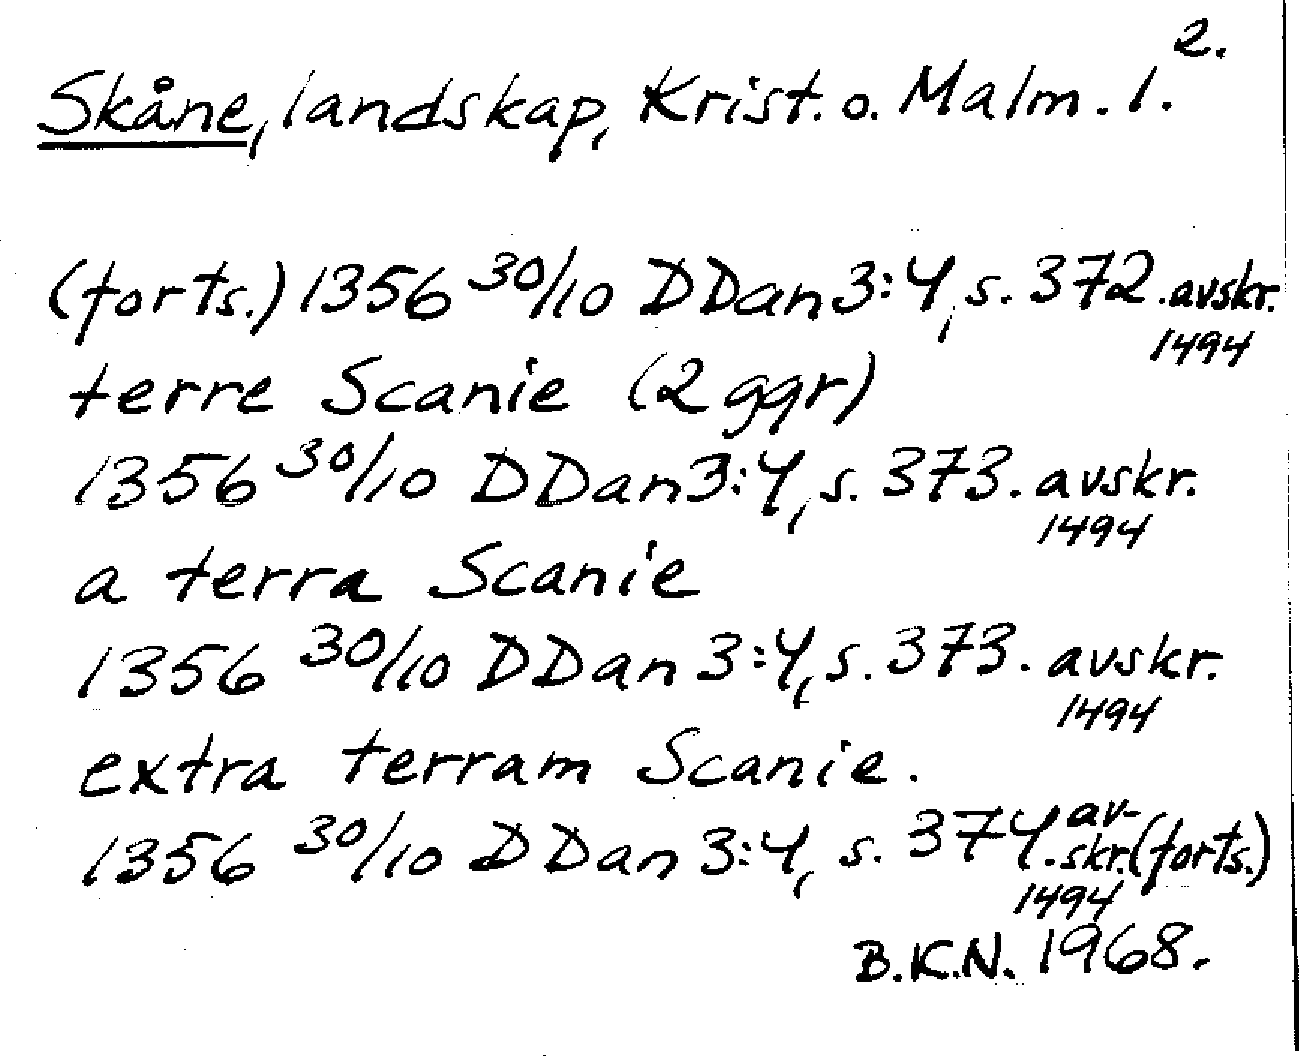 2.
Skåne, landskap, Krist. o. Malm. l.
(forts.) 1356 30/10 DDan 3:4, s. 372. avskr.
1494
terre Scanie (2 ggr)
1356 30/10 DDan 3:4, s. 373. avskr.
1494
a terra Scanie
1356 30/10 DDan 3:4, s. 373. avskr.
1494
extra terram Scanie.
1356 30/10 DDan 3:4, s. 374. av-
skr. (forts.)
1494
B.K.N. 1968.